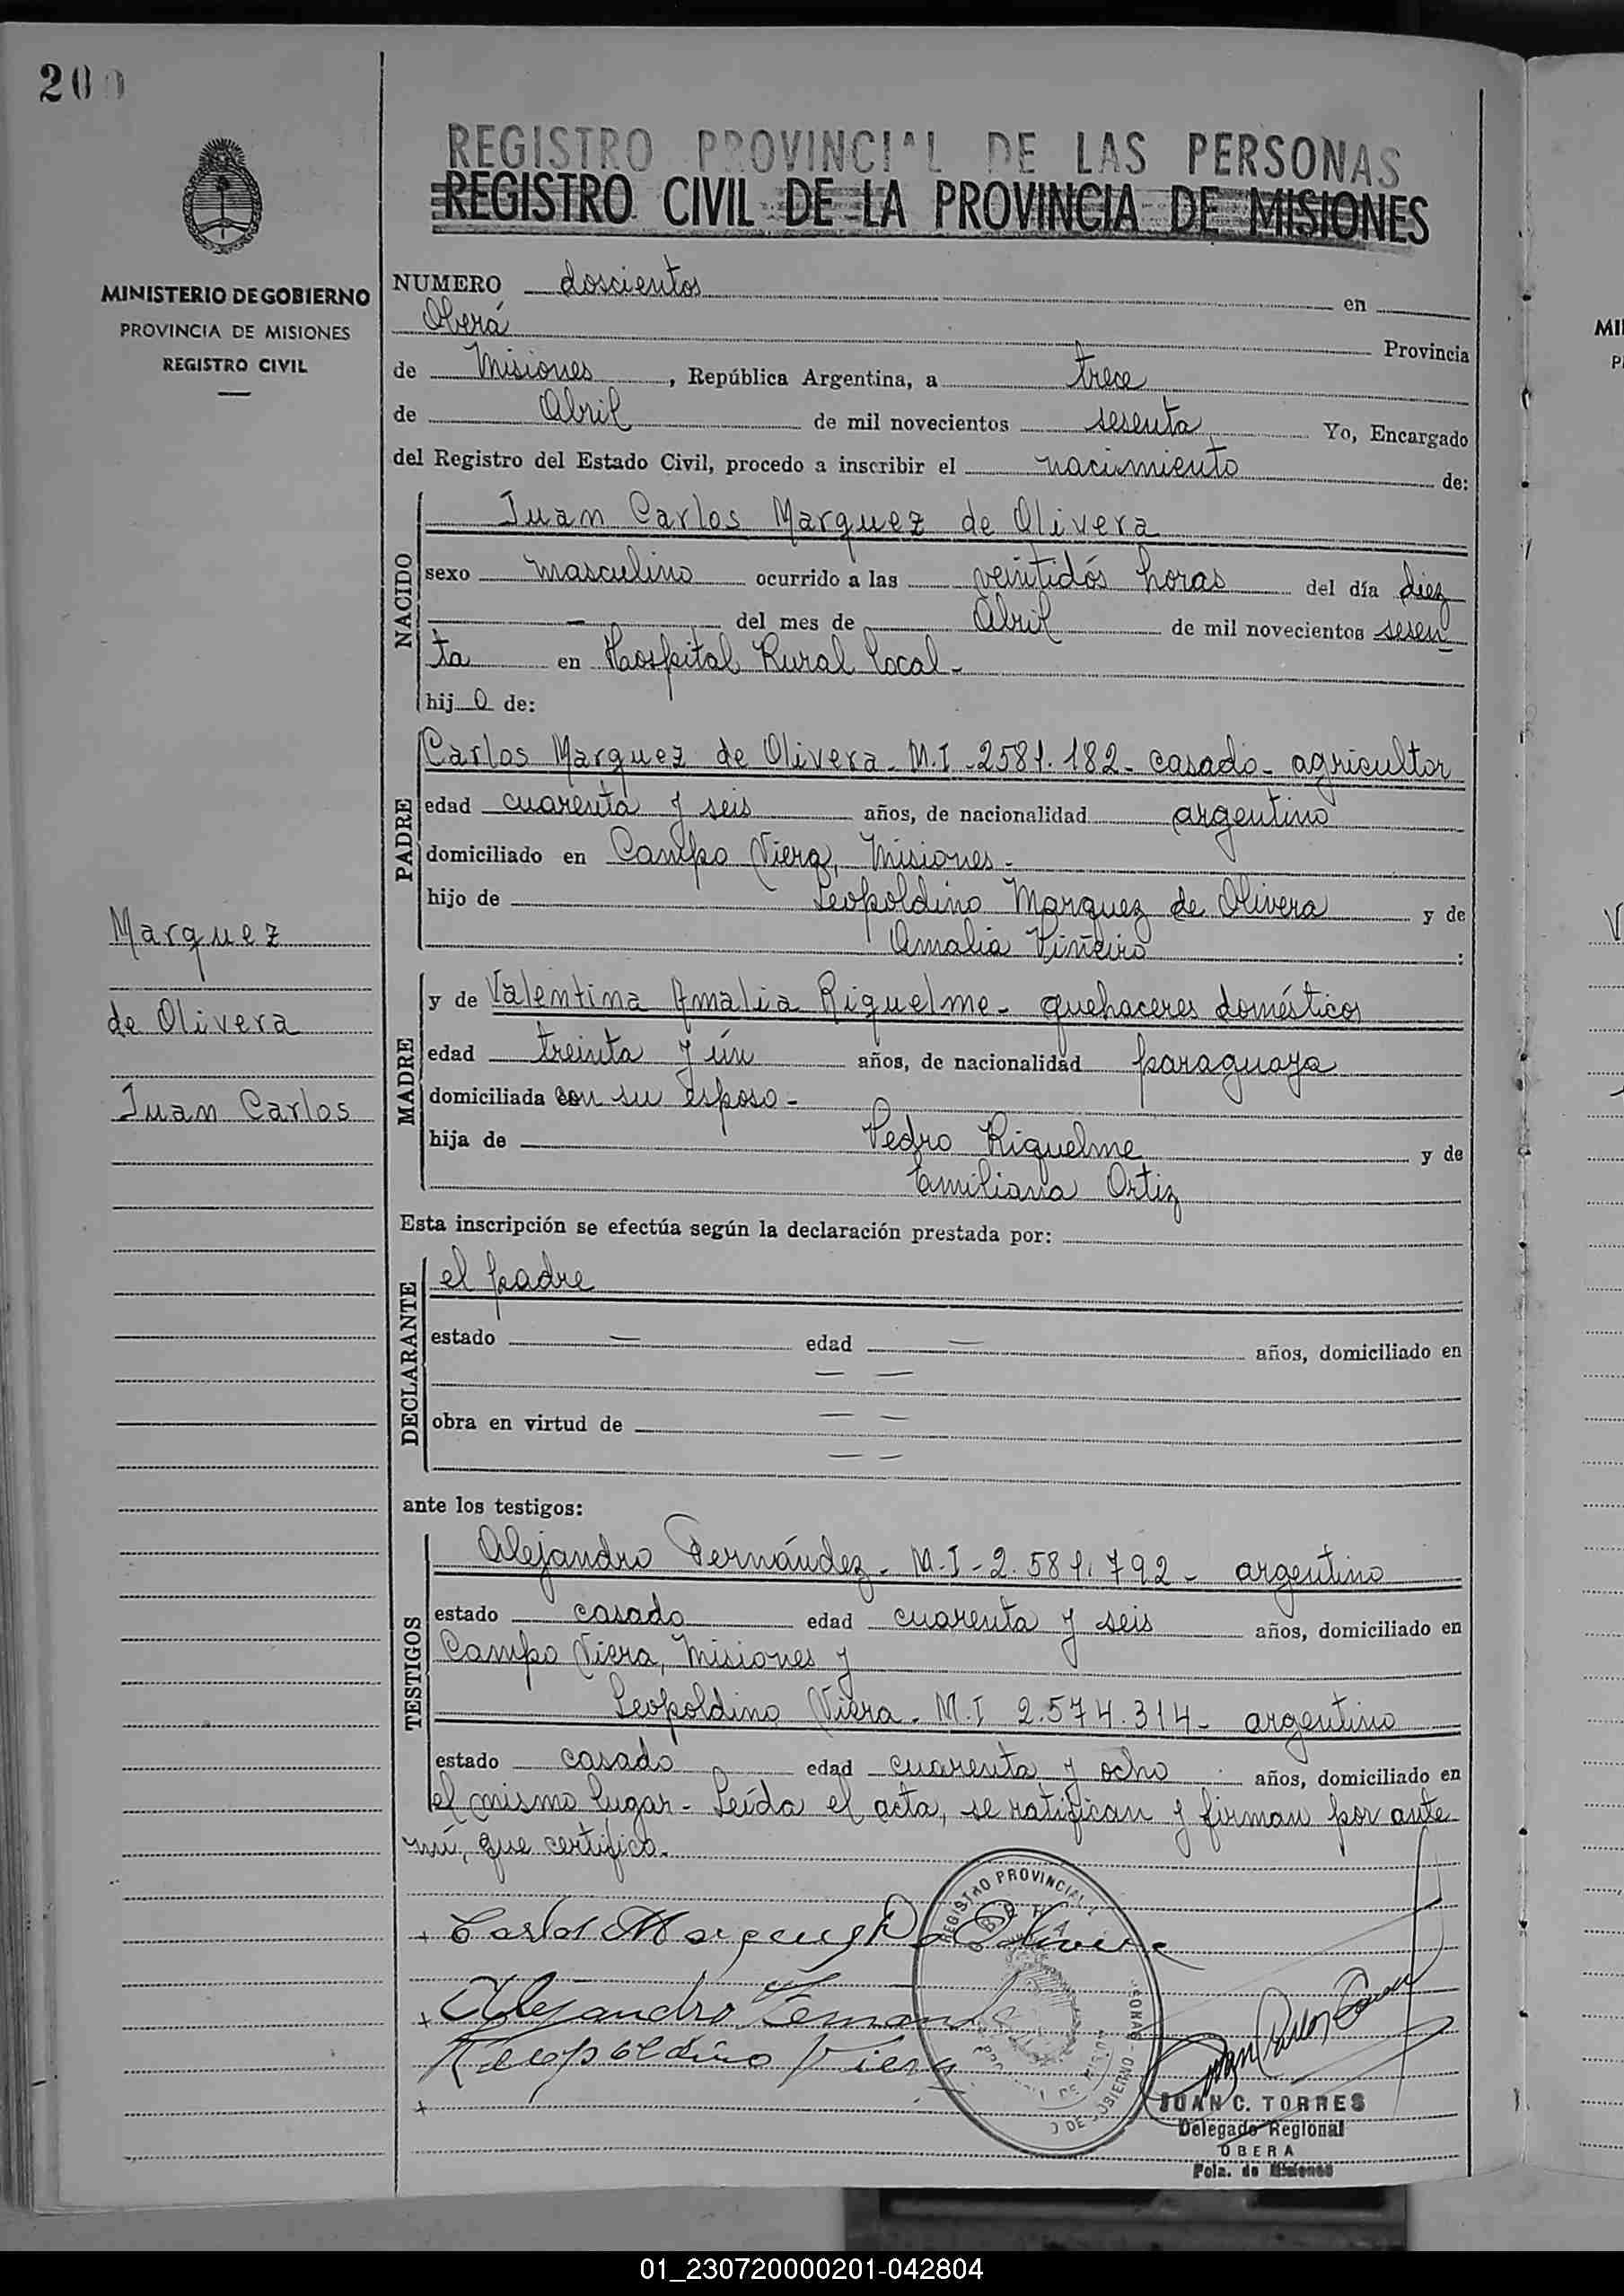 200
REGISTRO PROVINCIAL DE LAS PERSONAS
REGISTRO CIVIL DE LA PROVINCIA DE MISIONES
MINISTERIO DE GOBIERNO
PROVINCIA DE MISIONES
REGISTRO CIVIL
NUMERO doscientos en
Oberá Provincia
de Misiones, República Argentina, a trece
de Abril de mil novecientos sesenta Yo, Encargado
del Registro del Estado Civil, procedo a inscribir el nacimiento de:
NACIDO
Juan Carlos Marquez de Olivera
sexo masculino ocurrido a las veintidós horas del día diez
— del mes de Abril de mil novecientos sesen
ta en Hospital Rural Local -
hijo de:
PADRE
Carlos Marquez de Olivera - M.I - 2581.182 - casado - agricultor
edad cuarenta y seis años, de nacionalidad argentino
domiciliado en Campo Viera, Misiones -
hijo de Leopoldino Marquez de Olivera y de
Amalia Viñeiro :
Marquez
de Olivera
Juan Carlos
MADRE
y de Valentina Amalia Riquelme - quehaceres domésticos
edad treinta y ún años, de nacionalidad paraguaya
domiciliada con su esposo -
hija de Pedro Riquelme y de
Emiliana Ortiz
Esta inscripción se efectúa según la declaración prestada por:
DECLARANTE
el padre
estado — edad — años, domiciliado en
— —
obra en virtud de — —
— —
ante los testigos:
TESTIGOS
Alejandro Fernández - M.I - 2.581.792 - argentino
estado casado edad cuarenta y seis años, domiciliado en
Campo Viera, Misiones y
Leopoldino Viera - M.I 2.574.314 - argentino
estado casado edad cuarenta y ocho años, domiciliado en
el mismo lugar - Leída el acta, se ratifican y firman por ante
mí, que certifico.
REGISTRO PROVINCIAL
Carlos Marquez D Olivera
Alejandro Fernand
Leopoldino Viera
JUAN C. TORRES
Delegado Regional
OBERA
Pcia. de Misiones
01_230720000201-042804